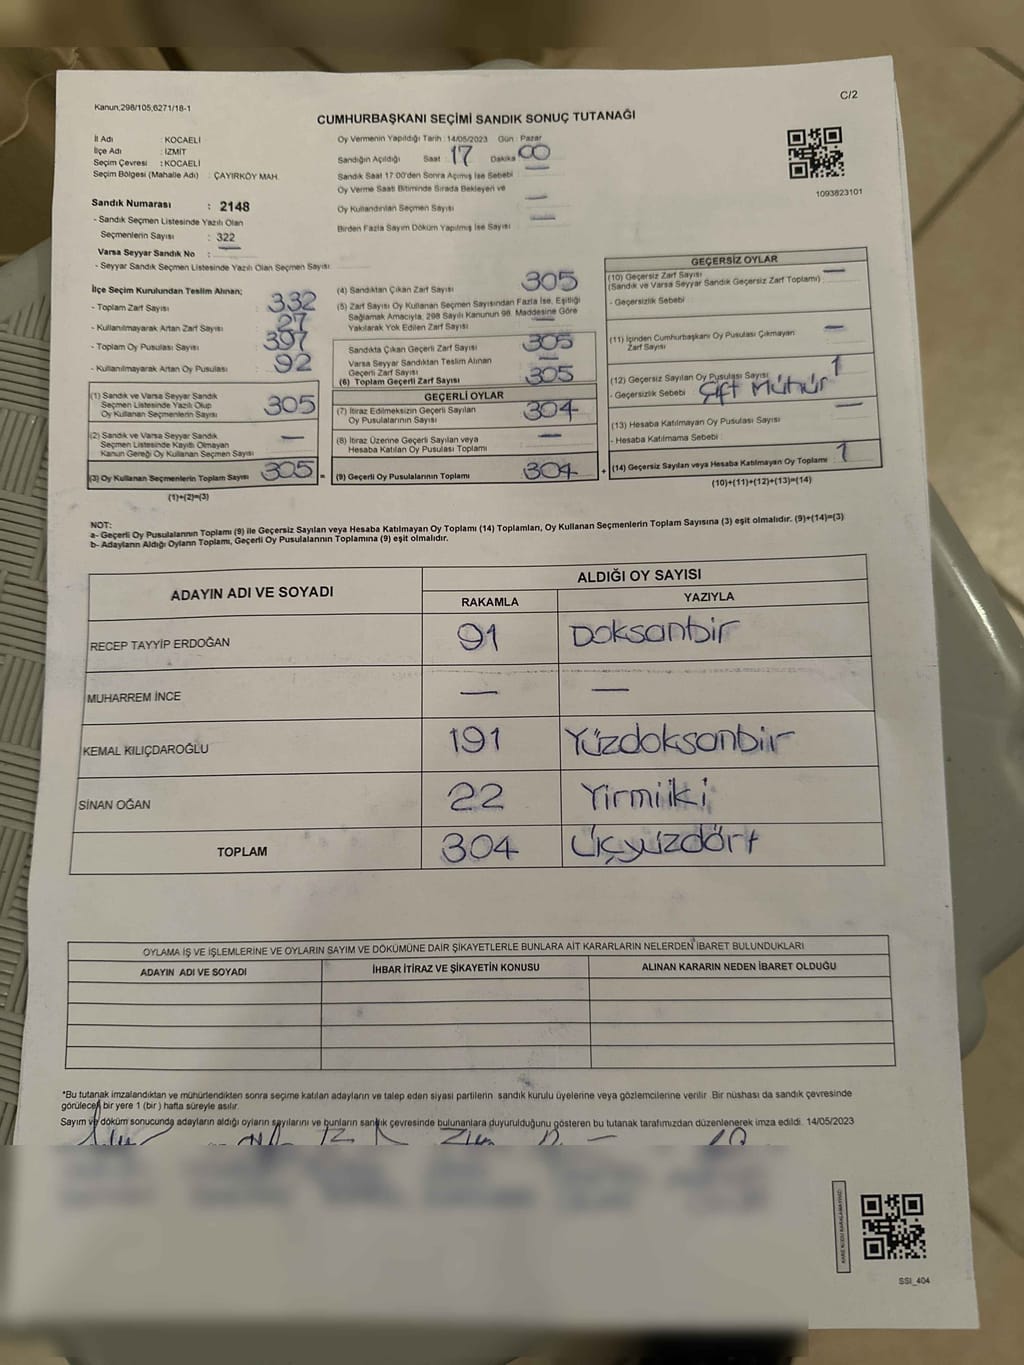 Kanun;298/105;6271/18-1
C/2
CUMHURBAŞKANI SEÇİMİ SANDIK SONUÇ TUTANAĞI
İl Adı : KOCAELİ
İlçe Adı : İZMİT
Seçim Çevresi : KOCAELİ
Seçim Bölgesi (Mahalle Adı) : ÇAYIRKÖY MAH.
Sandık Numarası : 2148
- Sandık Seçmen Listesinde Yazılı Olan
Seçmenlerin Sayısı : 322
Varsa Seyyar Sandık No : —
- Seyyar Sandık Seçmen Listesinde Yazılı Olan Seçmen Sayısı:
Oy Vermenin Yapıldığı Tarih : 14/05/2023 Gün : Pazar
Sandığın Açıldığı Saat : 17 Dakika : 00
Sandık Saat 17:00'den Sonra Açımış İse Sebebi : —
Oy Verme Saati Bitiminde Sırada Bekleyen ve
Oy Kullandırılan Seçmen Sayısı —
Birden Fazla Sayım Döküm Yapılmış İse Sayısı —
1093823101
İlçe Seçim Kurulundan Teslim Alınan;
- Toplam Zarf Sayısı : 332
- Kullanılmayarak Artan Zarf Sayısı : 27
- Toplam Oy Pusulası Sayısı : 397
- Kullanılmayarak Artan Oy Pusulası : 92
(1) Sandık ve Varsa Seyyar Sandık
Seçmen Listesinde Yazılı Olup
Oy Kullanan Seçmenlerin Sayısı 305
(2) Sandık ve Varsa Seyyar Sandık
Seçmen Listesinde Kaydı Olmayan
Kanun Gereği Oy Kullanan Seçmen Sayısı —
(3) Oy Kullanan Seçmenlerin Toplam Sayısı 305 =
(1)+(2)=(3)
(4) Sandıktan Çıkan Zarf Sayısı 305
(5) Zarf Sayısı Oy Kullanan Seçmen Sayısından Fazla İse, Eşitliği
Sağlamak Amacıyla, 298 Sayılı Kanunun 98. Maddesine Göre
Yakılarak Yok Edilen Zarf Sayısı —
Sandıkta Çıkan Geçerli Zarf Sayısı 305
Varsa Seyyar Sandıktan Teslim Alınan
Geçerli Zarf Sayısı —
(6) Toplam Geçerli Zarf Sayısı 305
GEÇERLİ OYLAR
(7) İtiraz Edilmeksizin Geçerli Sayılan
Oy Pusulalarının Sayısı 304
(8) İtiraz Üzerine Geçerli Sayılan veya
Hesaba Katılan Oy Pusulası Toplamı —
(9) Geçerli Oy Pusulalarının Toplamı 304 +
GEÇERSİZ OYLAR
(10) Geçersiz Zarf Sayısı —
(Sandık ve Varsa Seyyar Sandık Geçersiz Zarf Toplamı)
- Geçersizlik Sebebi :
(11) İçinden Cumhurbaşkanı Oy Pusulası Çıkmayan
Zarf Sayısı —
(12) Geçersiz Sayılan Oy Pusulası Sayısı 1
- Geçersizlik Sebebi : Çift Mühür
(13) Hesaba Katılmayan Oy Pusulası Sayısı —
- Hesaba Katılmama Sebebi :
(14) Geçersiz Sayılan veya Hesaba Katılmayan Oy Toplamı 1
(10)+(11)+(12)+(13)=(14)
NOT:
a- Geçerli Oy Pusulalarının Toplamı (9) ile Geçersiz Sayılan veya Hesaba Katılmayan Oy Toplamı (14) Toplamları, Oy Kullanan Seçmenlerin Toplam Sayısına (3) eşit olmalıdır. (9)+(14)=(3)
b- Adayların Aldığı Oyların Toplamı, Geçerli Oy Pusulalarının Toplamına (9) eşit olmalıdır.
ADAYIN ADI VE SOYADI
ALDIĞI OY SAYISI
RAKAMLA YAZIYLA
RECEP TAYYİP ERDOĞAN 91 Doksanbir
MUHARREM İNCE — —
KEMAL KILIÇDAROĞLU 191 Yüzdoksanbir
SİNAN OĞAN 22 Yirmiiki
TOPLAM 304 Üçyüzdört
OYLAMA İŞ VE İŞLEMLERİNE VE OYLARIN SAYIM VE DÖKÜMÜNE DAİR ŞİKAYETLERLE BUNLARA AİT KARARLARIN NELERDEN İBARET BULUNDUKLARI
ADAYIN ADI VE SOYADI İHBAR İTİRAZ VE ŞİKAYETİN KONUSU ALINAN KARARIN NEDEN İBARET OLDUĞU
*Bu tutanak imzalandıktan ve mühürlendikten sonra seçime katılan adayların ve talep eden siyasi partilerin sandık kurulu üyelerine veya gözlemcilerine verilir. Bir nüshası da sandık çevresinde
görülecek bir yere 1 (bir) hafta süreyle asılır.
Sayım ve döküm sonucunda adayların aldığı oyların sayılarını ve bunların sandık çevresinde bulunanlara duyurulduğunu gösteren bu tutanak tarafımızdan düzenlenerek imza edildi. 14/05/2023
SSI_404